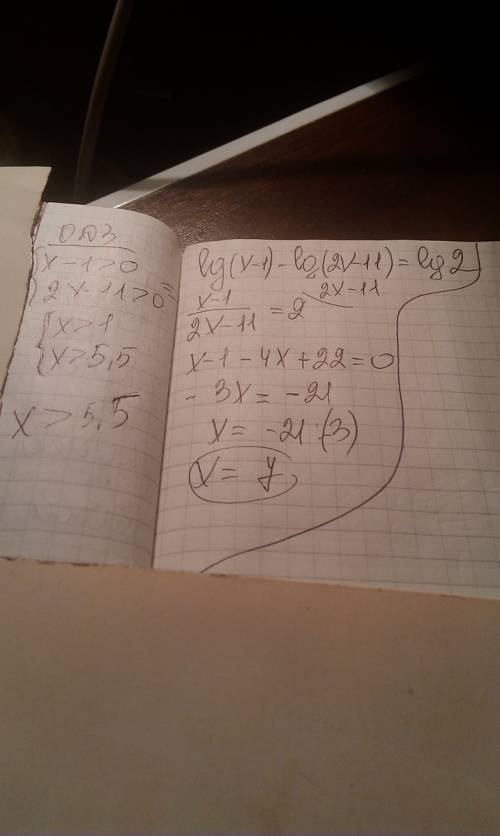 ОДЗ
{x-1>0
{2x-11>0 =
{x>1
{x>5,5
x>5,5
lg(x-1)-lg(2x-11)=lg2
x-1/2x-11 = 2 2x-11
x-1-4x+22=0
-3x=-21
x= -21:(3)
x= 7